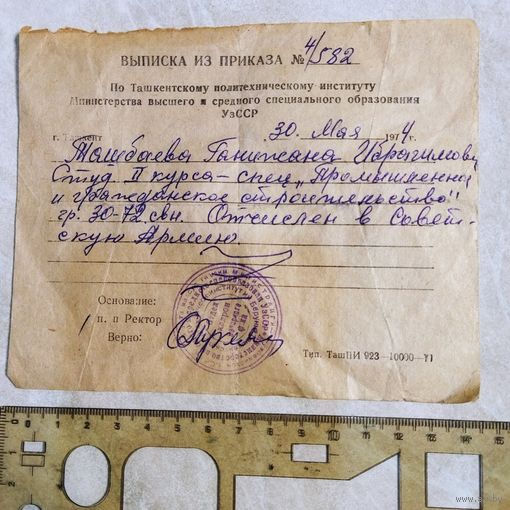 ВЫПИСКА ИЗ ПРИКАЗА № 4/582
По Ташкентскому политехническому институту
Министерства высшего и средного специального образования
УзССР
г. Ташкент 30. Мая 1974 г.
Ташбаева Ганижана Ибрагимови
Студ. II курса - спец „Промышленна
и гражданское строительство"
гр. 30-72 свн. Отчислен в Совет-
скую Армию.
Основание:
п. п Ректор
Верно:
Тип. ТашПИ 923—10000—71
0 1 2 3 4 5 6 7 8 9 10 11 12 13 14 15